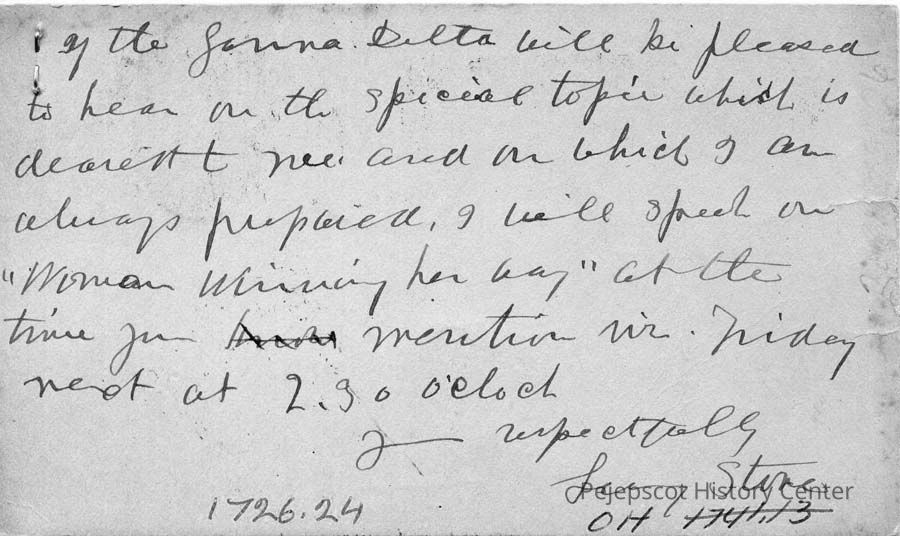 if the Gamma Delta will be pleased
to hear on the special topic which is
dearest to me and on which I am
always prepared, I will speak on
"Woman winning her way" at the
time you mention viz. Friday
next at 2.30 o'clock
respectfully
Lucy Stone
Pejepscot History Center
1726.24
OH 1741.13